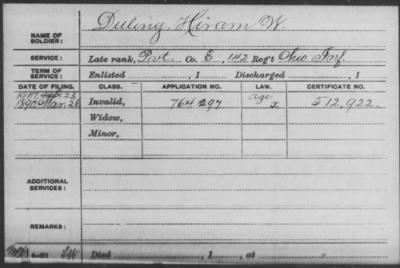 Duling, Hiram W.
NAME OF SOLDIER:
SERVICE: Late rank, Pvt. Co. E, 142 Reg't Ohio Inf.
TERM OF SERVICE: Enlisted , 1 Discharged , 1
DATE OF FILING. CLASS. APPLICATION NO. LAW. CERTIFICATE NO.
1890 Mar. 28 Invalid, 764297 Age J. 512,922.
Widow,
Minor,
ADDITIONAL SERVICES:
REMARKS:
Died , 1 , at